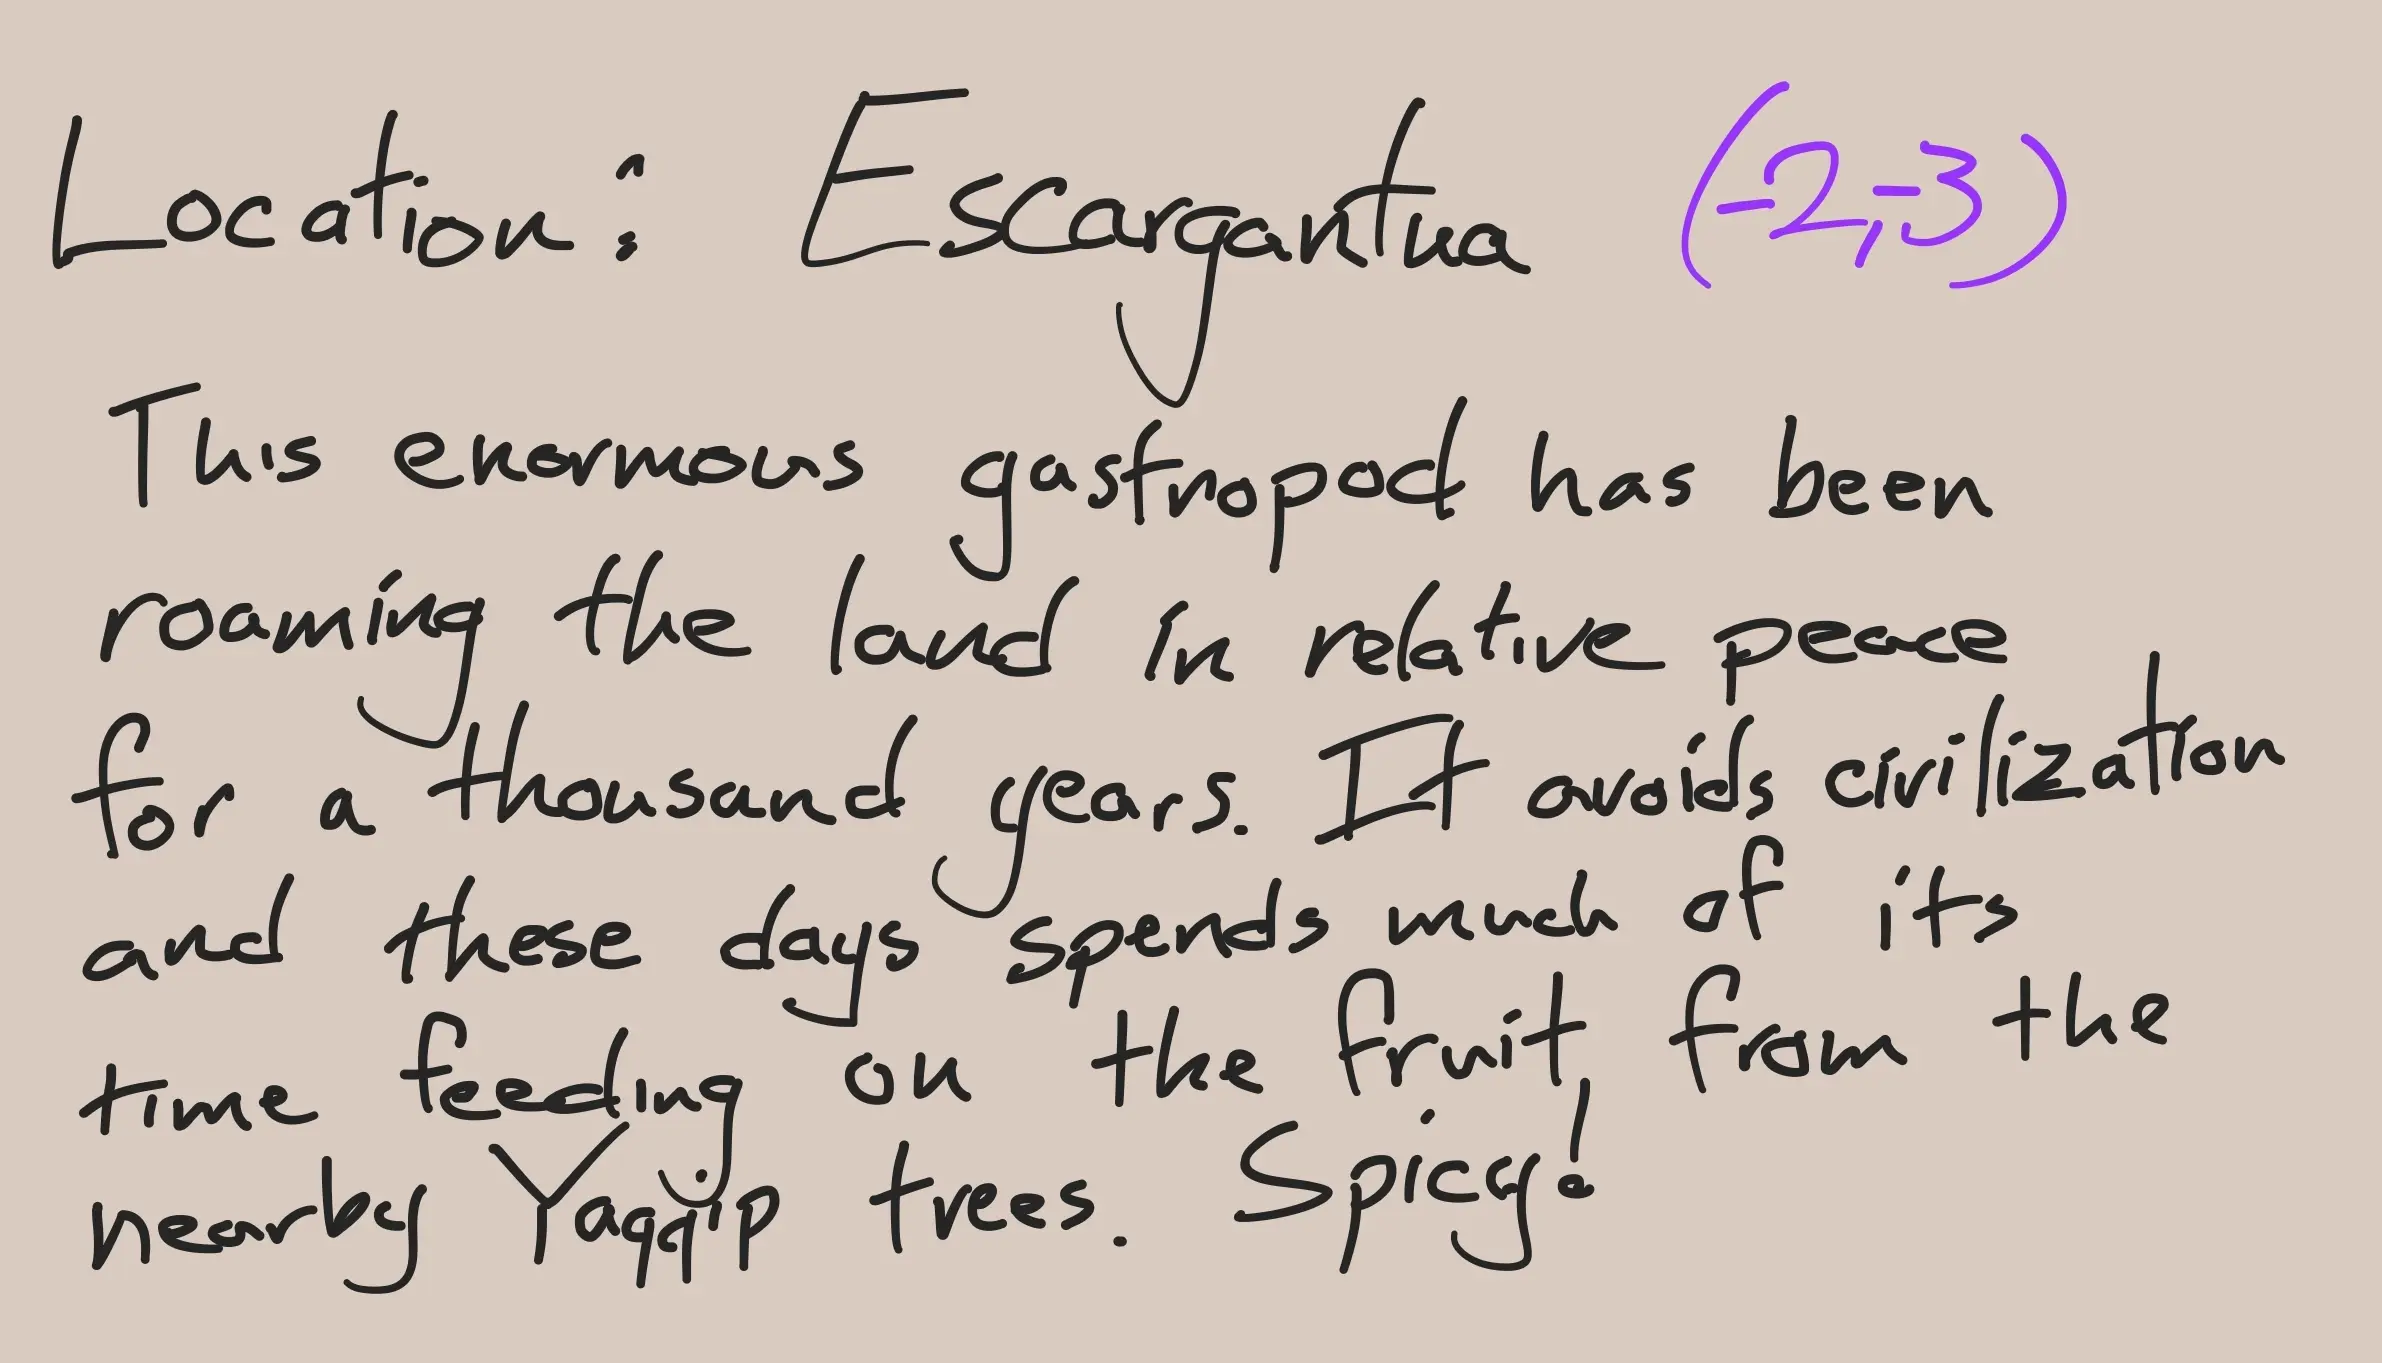 Location: Escargantua (-2,-3)
This enormous gastropod has been
roaming the land in relative peace
for a thousand years. It avoids civilization
and these days spends much of its
time feeding on the fruit from the
nearby Yaqqip trees. Spicy!